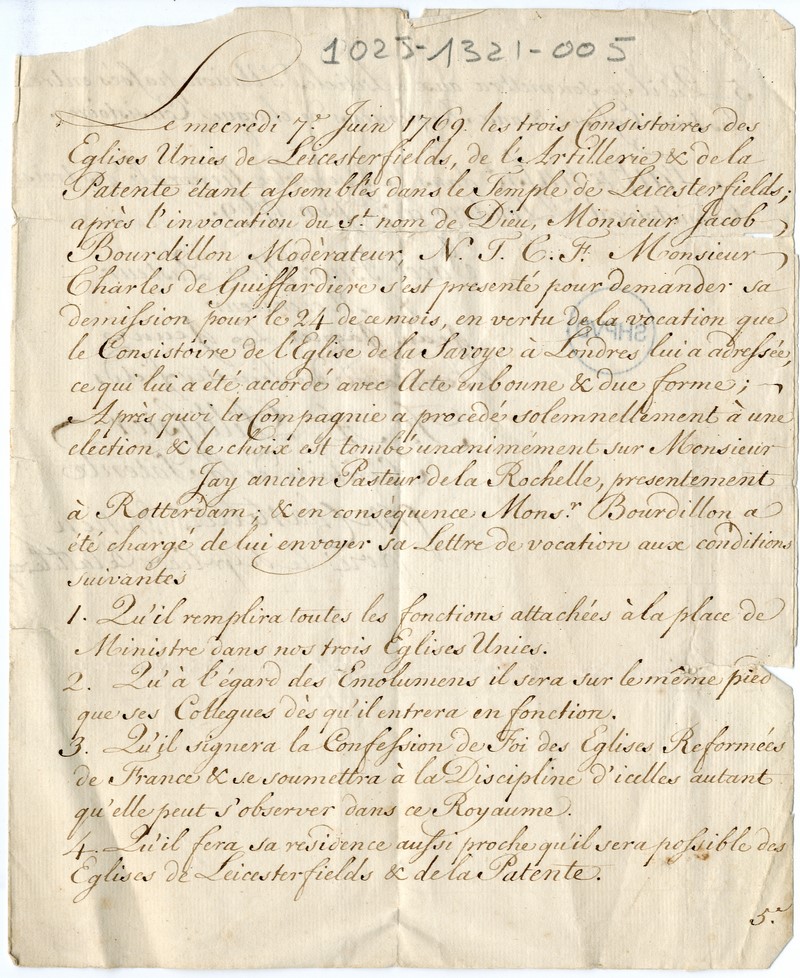 1025-1321-005
Le mecredi 7.e Juin 1769. les trois Consistoires des
Eglises Unies de Leicesterfields, de l'Artillerie & de la
Patente étant assemblés dans le Temple de Leicesterfields;
après l'invocation du st. nom de Dieu, Monsieur Jacob
Bourdillon Modérateur, N. T. C. F. Monsieur
Charles de Guiffardiere s'est presenté pour demander sa
demission pour le 24 de ce mois, en vertu de la vocation que
le Consistoire de l'Eglise de la Savoye à Londres lui a adressée,
ce qui lui a été accordé avec Acte en bonne & due forme;
Après quoi la Compagnie a procédé solemnellement à une
election & le choix est tombé unanimément sur Monsieur
Jay ancien Pasteur de la Rochelle, presentement
à Rotterdam; & en conséquence Mons.r Bourdillon a
été chargé de lui envoyer sa Lettre de vocation aux conditions
suivantes
1. Qu'il remplira toutes les fonctions attachées à la place de
Ministre dans nos trois Eglises Unies.
2. Qu'à l'égard des Emolumens il sera sur le même pied
que ses Collegues dès qu'il entrera en fonction.
3. Qu'il signera la Confession de Foi des Eglises Reformées
de France & se soumettra à la Discipline d'icelles autant
qu'elle peut s'observer dans ce Royaume.
4. Qu'il fera sa residence aussi proche qu'il sera possible des
Eglises de Leicesterfields & de la Patente.
5.e